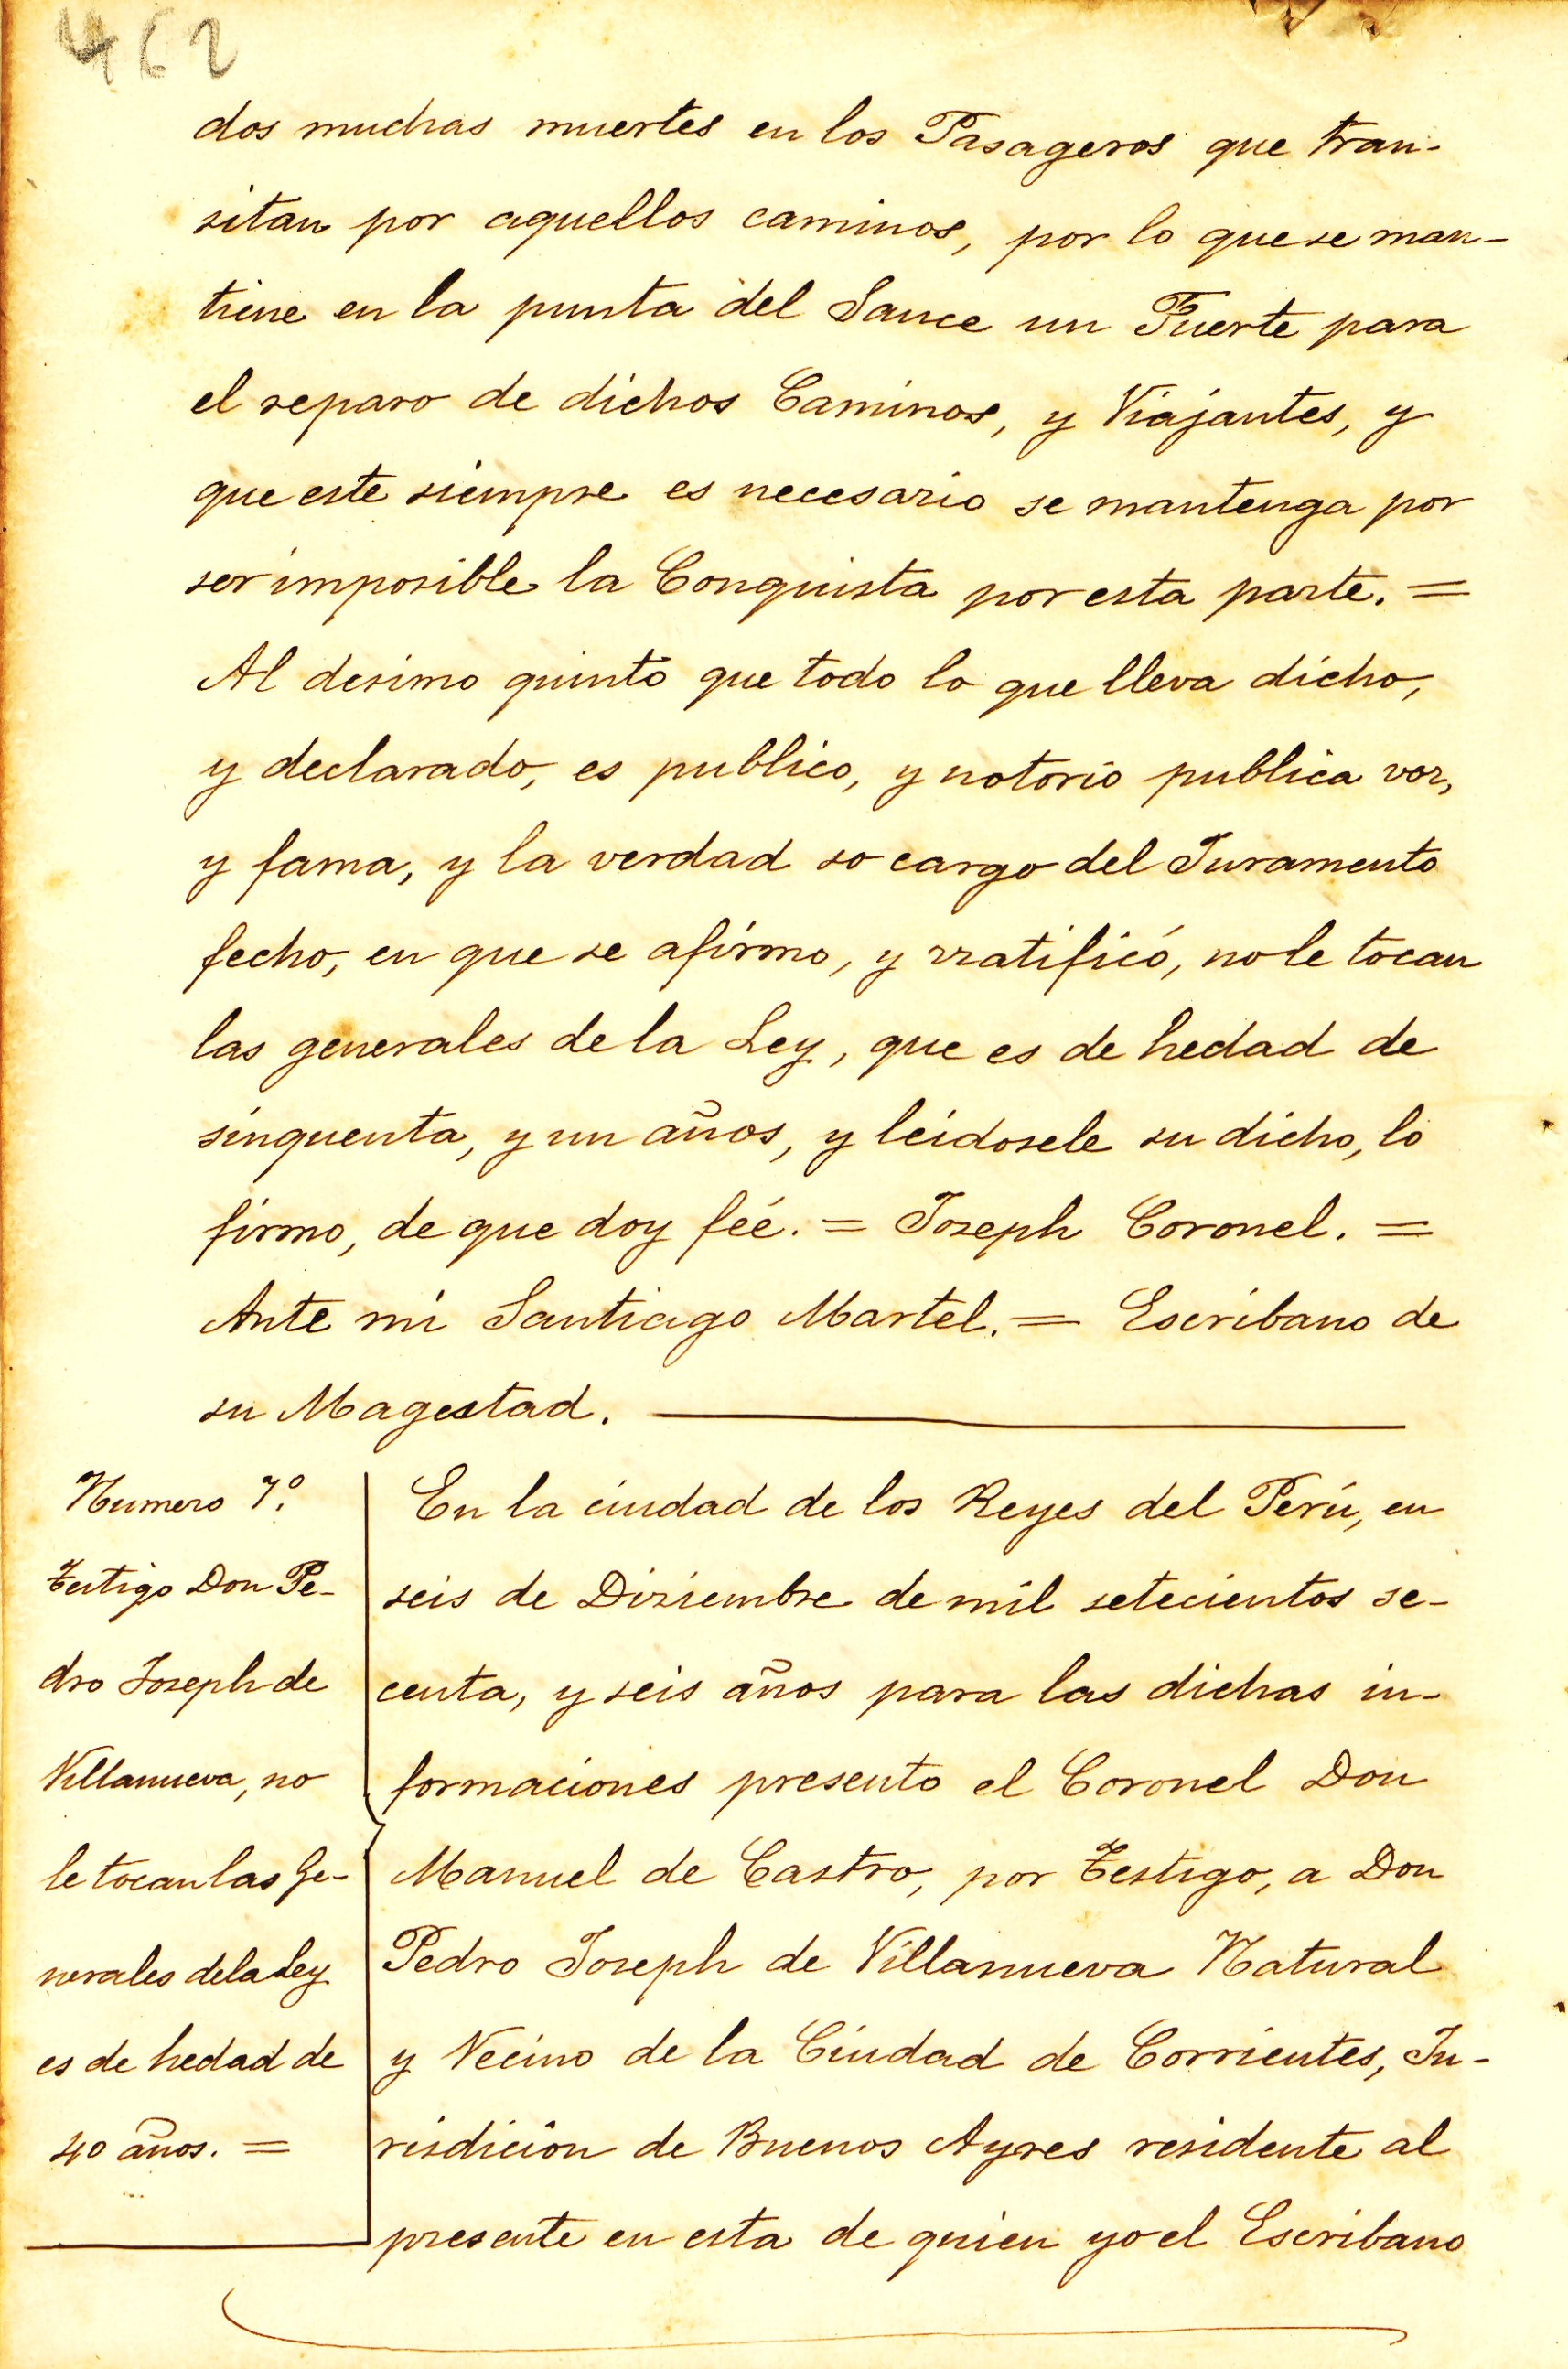 462
dos muchas muertes en los Pasageros que tran-
sitan por aquellos caminos, por lo que se man-
tiene en la punta del Sauce un Fuerte para
el reparo de dichos Caminos, y Viajantes, y
que este siempre es necesario se mantenga por
ser imposible la Conquista por esta parte. =
Al desimo quinto que todo lo que lleva dicho,
y declarado, es publico, y notorio publica voz,
y fama, y la verdad so cargo del Juramento
fecho, en que se afirmo, y rratificó, no le tocan
las generales de la Ley, que es de hedad de
sinquenta, y un años, y leidosele su dicho, lo
firmo, de que doy féé. = Joseph Coronel. =
Ante mi Santiago Martel. = Escribano de
su Magestad.
Numero 7º.
Testigo Don Pe-
dro Joseph de
Villanueva, no
le tocan las Ge-
nerales de la Ley
es de hedad de
40 años. =
En la ciudad de los Reyes del Perú, en
seis de Diziembre de mil setecientos se-
centa, y seis años para las dichas in-
formaciones presento el Coronel Don
Manuel de Castro, por Testigo, a Don
Pedro Joseph de Villanueva Natural
y Vecino de la Ciudad de Corrientes, Ju-
risdición de Buenos Ayres residente al
presente en esta de quien yo el Escribano